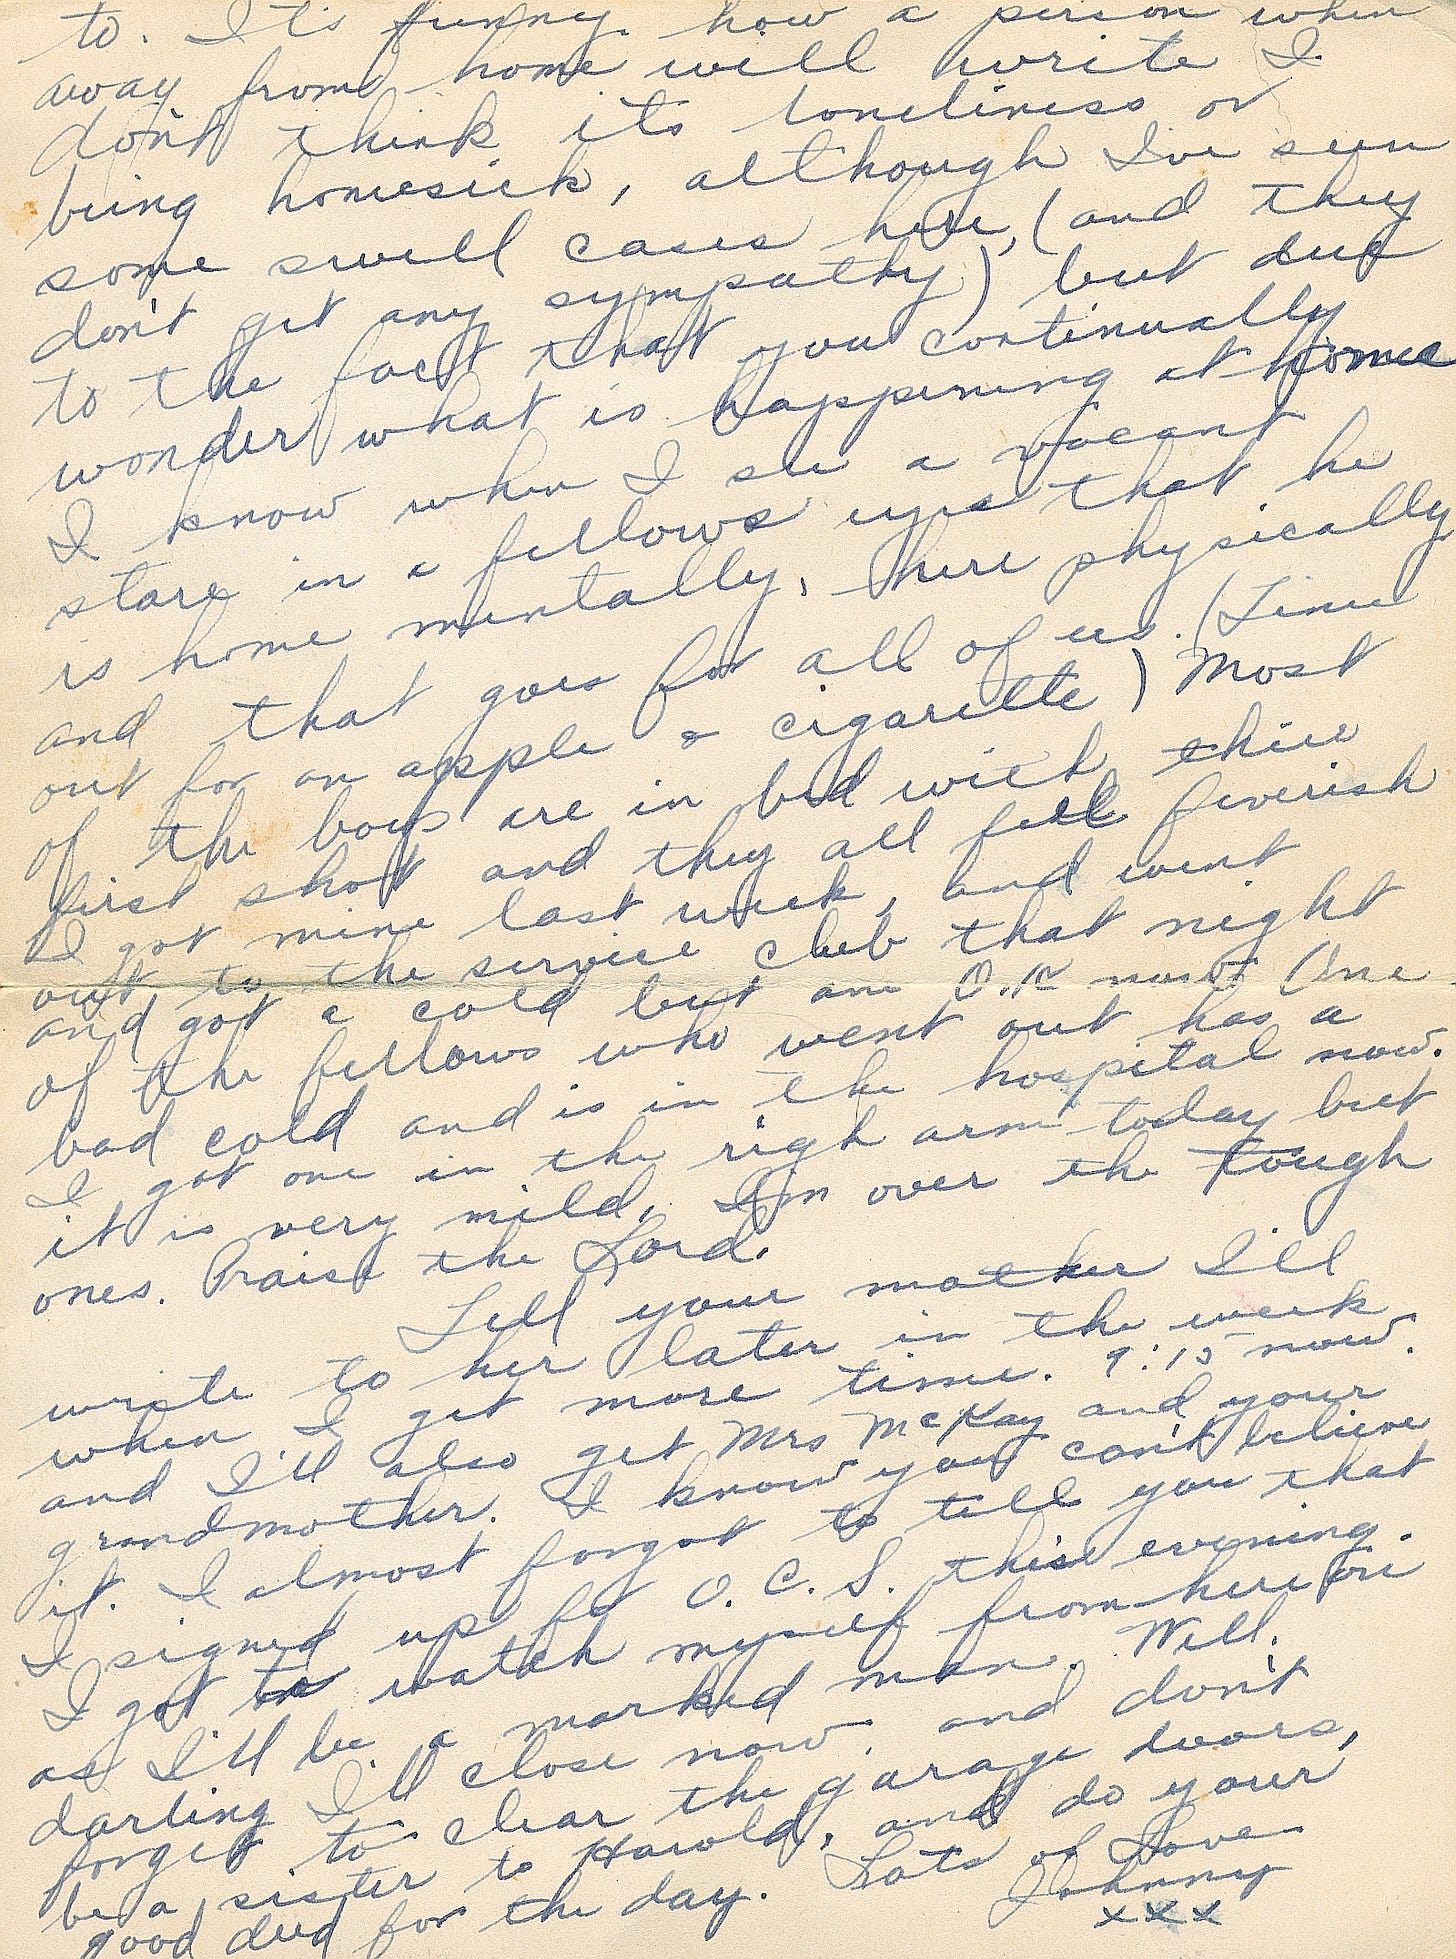 to. It's funny how a person when
away from home will write I
don't think its loneliness or
being homesick, although I've seen
some swell cases here, (and they
don't get any sympathy) but due
to the fact that you continually
wonder what is happening at home
I know when I see a vacant
stare in a fellows eyes that he
is home mentally, here physically
and that goes for all of us. (Time
out for an apple & cigarette) Most
of the boys are in bed with their
first shot and they all feel feverish
I got mine last week, and went
out to the service club that night
and got a cold but am O.K now. One
of the fellows who went out has a
bad cold and is in the hospital now.
I got one in the righ arm today but
it is very mild, I'm over the tough
ones. Praise the Lord.
Tell your mother I'll
write to her later in the week
when I get more time. 9:15 now.
and I'll also get Mrs McKay and your
grandmother. I know you can't believe
it. I almost forgot to tell you that
I signed up for O.C.S. this evening.
I got to watch myself from here on
as I'll be a marked man. Well,
darling I'll close now, and don't
forget to clear the garage doors,
be a sister to Harold, and do your
good deed for the day. Lots of Love
Johnny
xxx